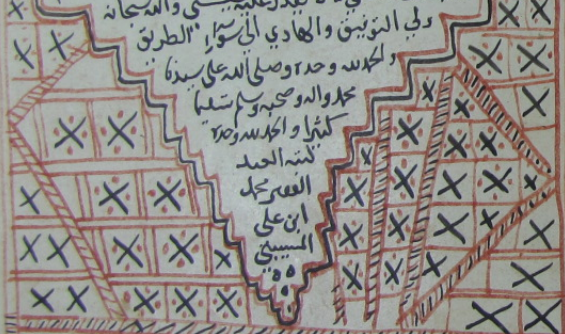 عليه والله سبحانه
ولي التوفيق والهادي الى سواء الطريق
والحمد لله وحده وصلى الله على سيدنا
محمد واله وصحبه وسلم تسليما
كثيرا والحمد لله وحده
كتبه العبد
الفقير محمد
ابن علي